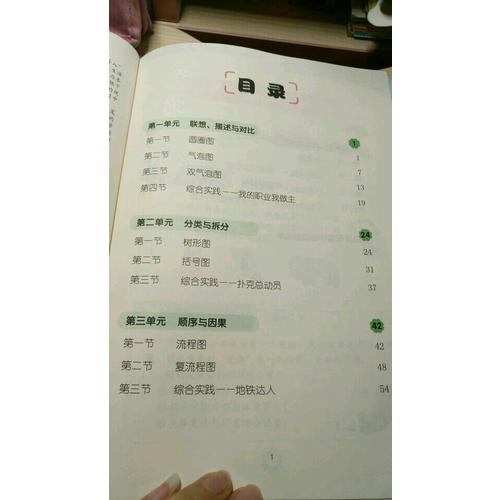 目录
第一单元 联想、描述与对比 1
第一节 圆圈图 1
第二节 气泡图 7
第三节 双气泡图 13
第四节 综合实践——我的职业我做主 19
第二单元 分类与拆分 24
第一节 树形图 24
第二节 括号图 31
第三节 综合实践——扑克总动员 37
第三单元 顺序与因果 42
第一节 流程图 42
第二节 复流程图 48
第三节 综合实践——地铁达人 54
1